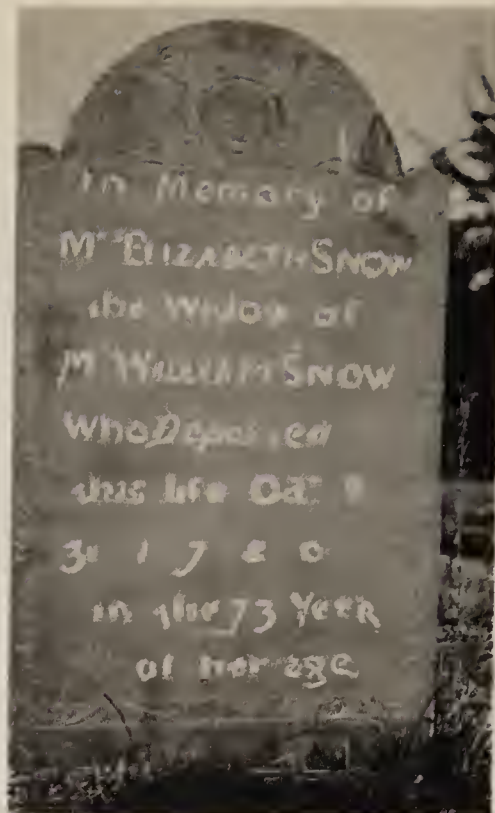 In Memory of
Mrs ELIZABETH SNOW
the Widow of
Mr WILLIAM SNOW
Who Departed
this life Oct
1780
in the 73 Year
of her age